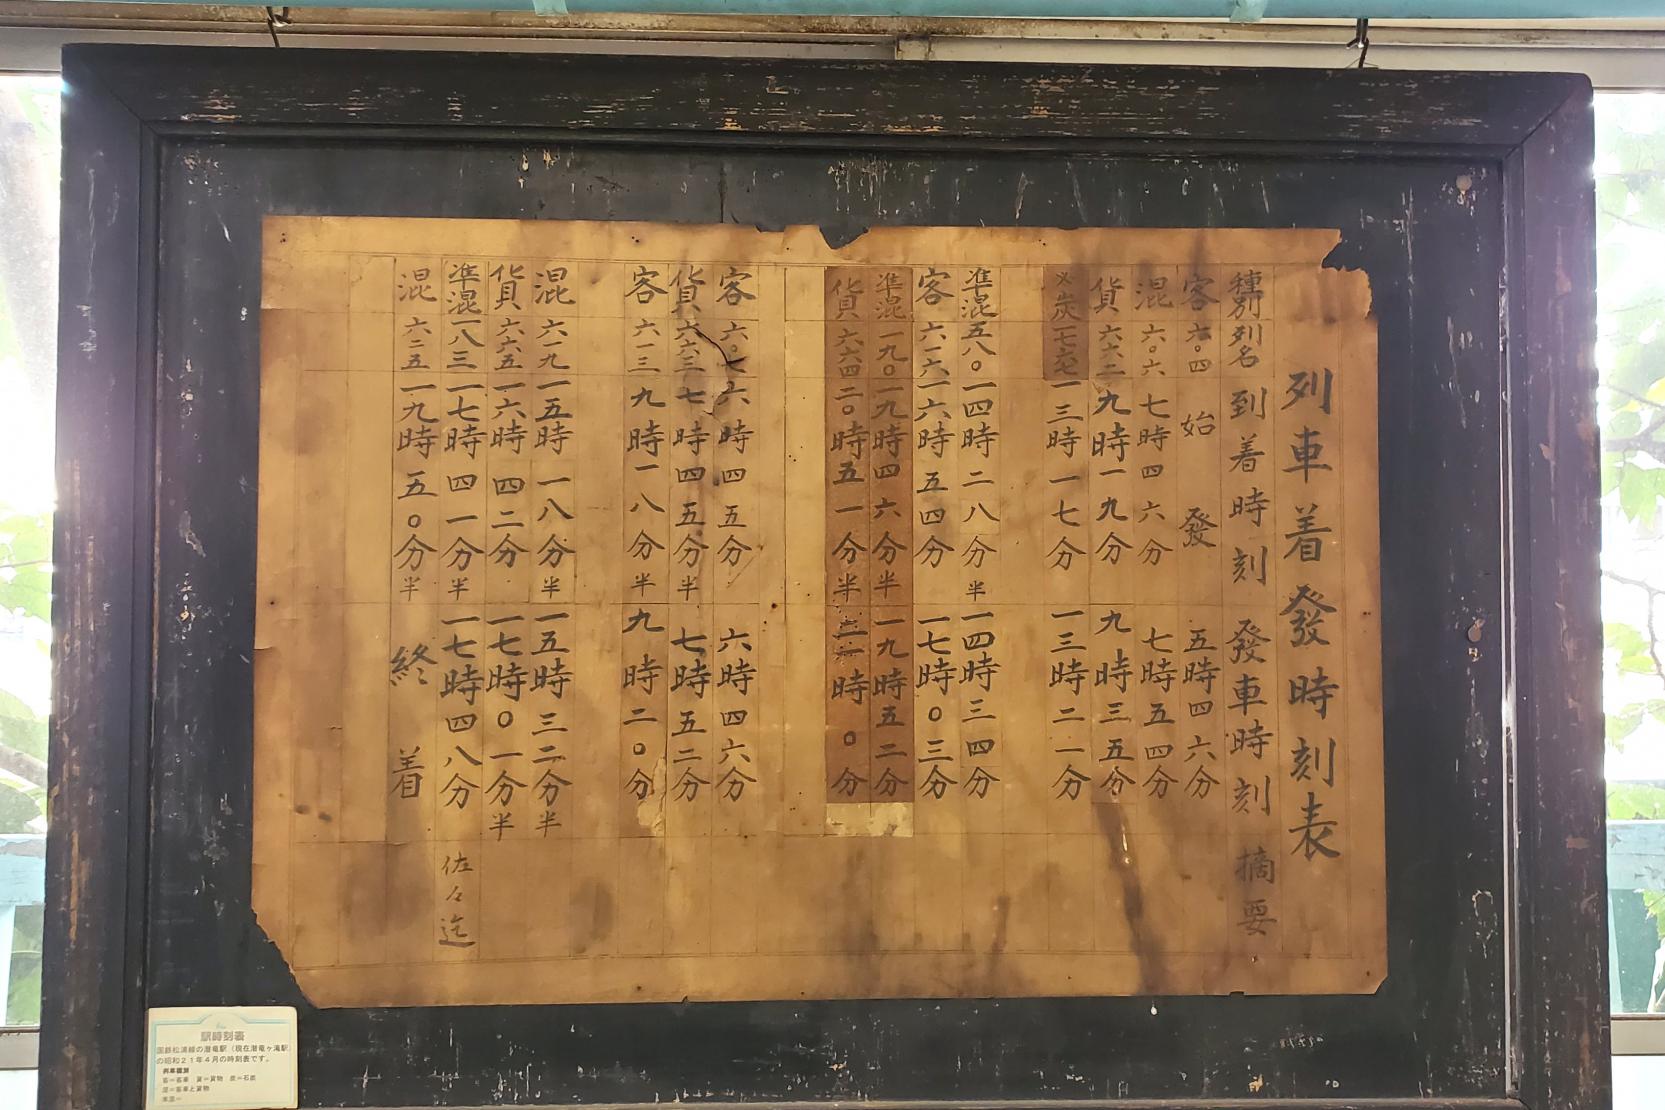 列車着發時刻表
種別 列名 到着時刻 發車時刻 摘要
客 六〇四 始發 五時四六分
混 六〇六 七時四六分 七時五四分
貨 六六二 九時一九分 九時三五分
※炭 一七六七 一三時一七分 一三時二一分
準混 五八〇 一四時二八分半 一四時三四分
客 六一六 一六時五四分 一七時〇三分
準混 一九〇 一九時四六分半 一九時五二分
貨 六六四 二〇時五一分半 二一時〇分
客 六〇七 六時四五分 六時四六分
貨 六六三 七時四五分半 七時五二分
客 六一三 九時一八分半 九時二〇分
混 六一九 一五時一八分半 一五時三二分半
貨 六六五 一六時四二分 一七時〇一分半
準混 一八三 一七時四一分半 一七時四八分 佐々迄
混 六二五 一九時五〇分半 終着
駅時刻表
国鉄松浦線の潜竜駅（現在潜竜ヶ滝駅）
の昭和２１年４月の時刻表です。
列車種別
客＝客車 貨＝貨物 炭＝石炭
混＝客車と貨物